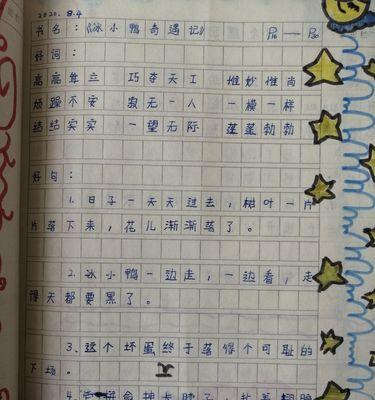 2020.8.4
书名:《冰小鸭奇遇记》 P₁₆—P₃₀
好词:
高高耸立 巧夺天工 惟妙惟肖
烦躁不安 寂无一人 一模一样
结结实实 一望无际 蓬蓬勃勃
好句:
1.日子一天天过去,树叶一片
片落下来,花儿渐渐落了。
2.冰小鸭一边走,一边看,走
得天都要黑了。
3.这个坏蛋终于落得个可耻的
下场。
4. 拼命 卡脖子,